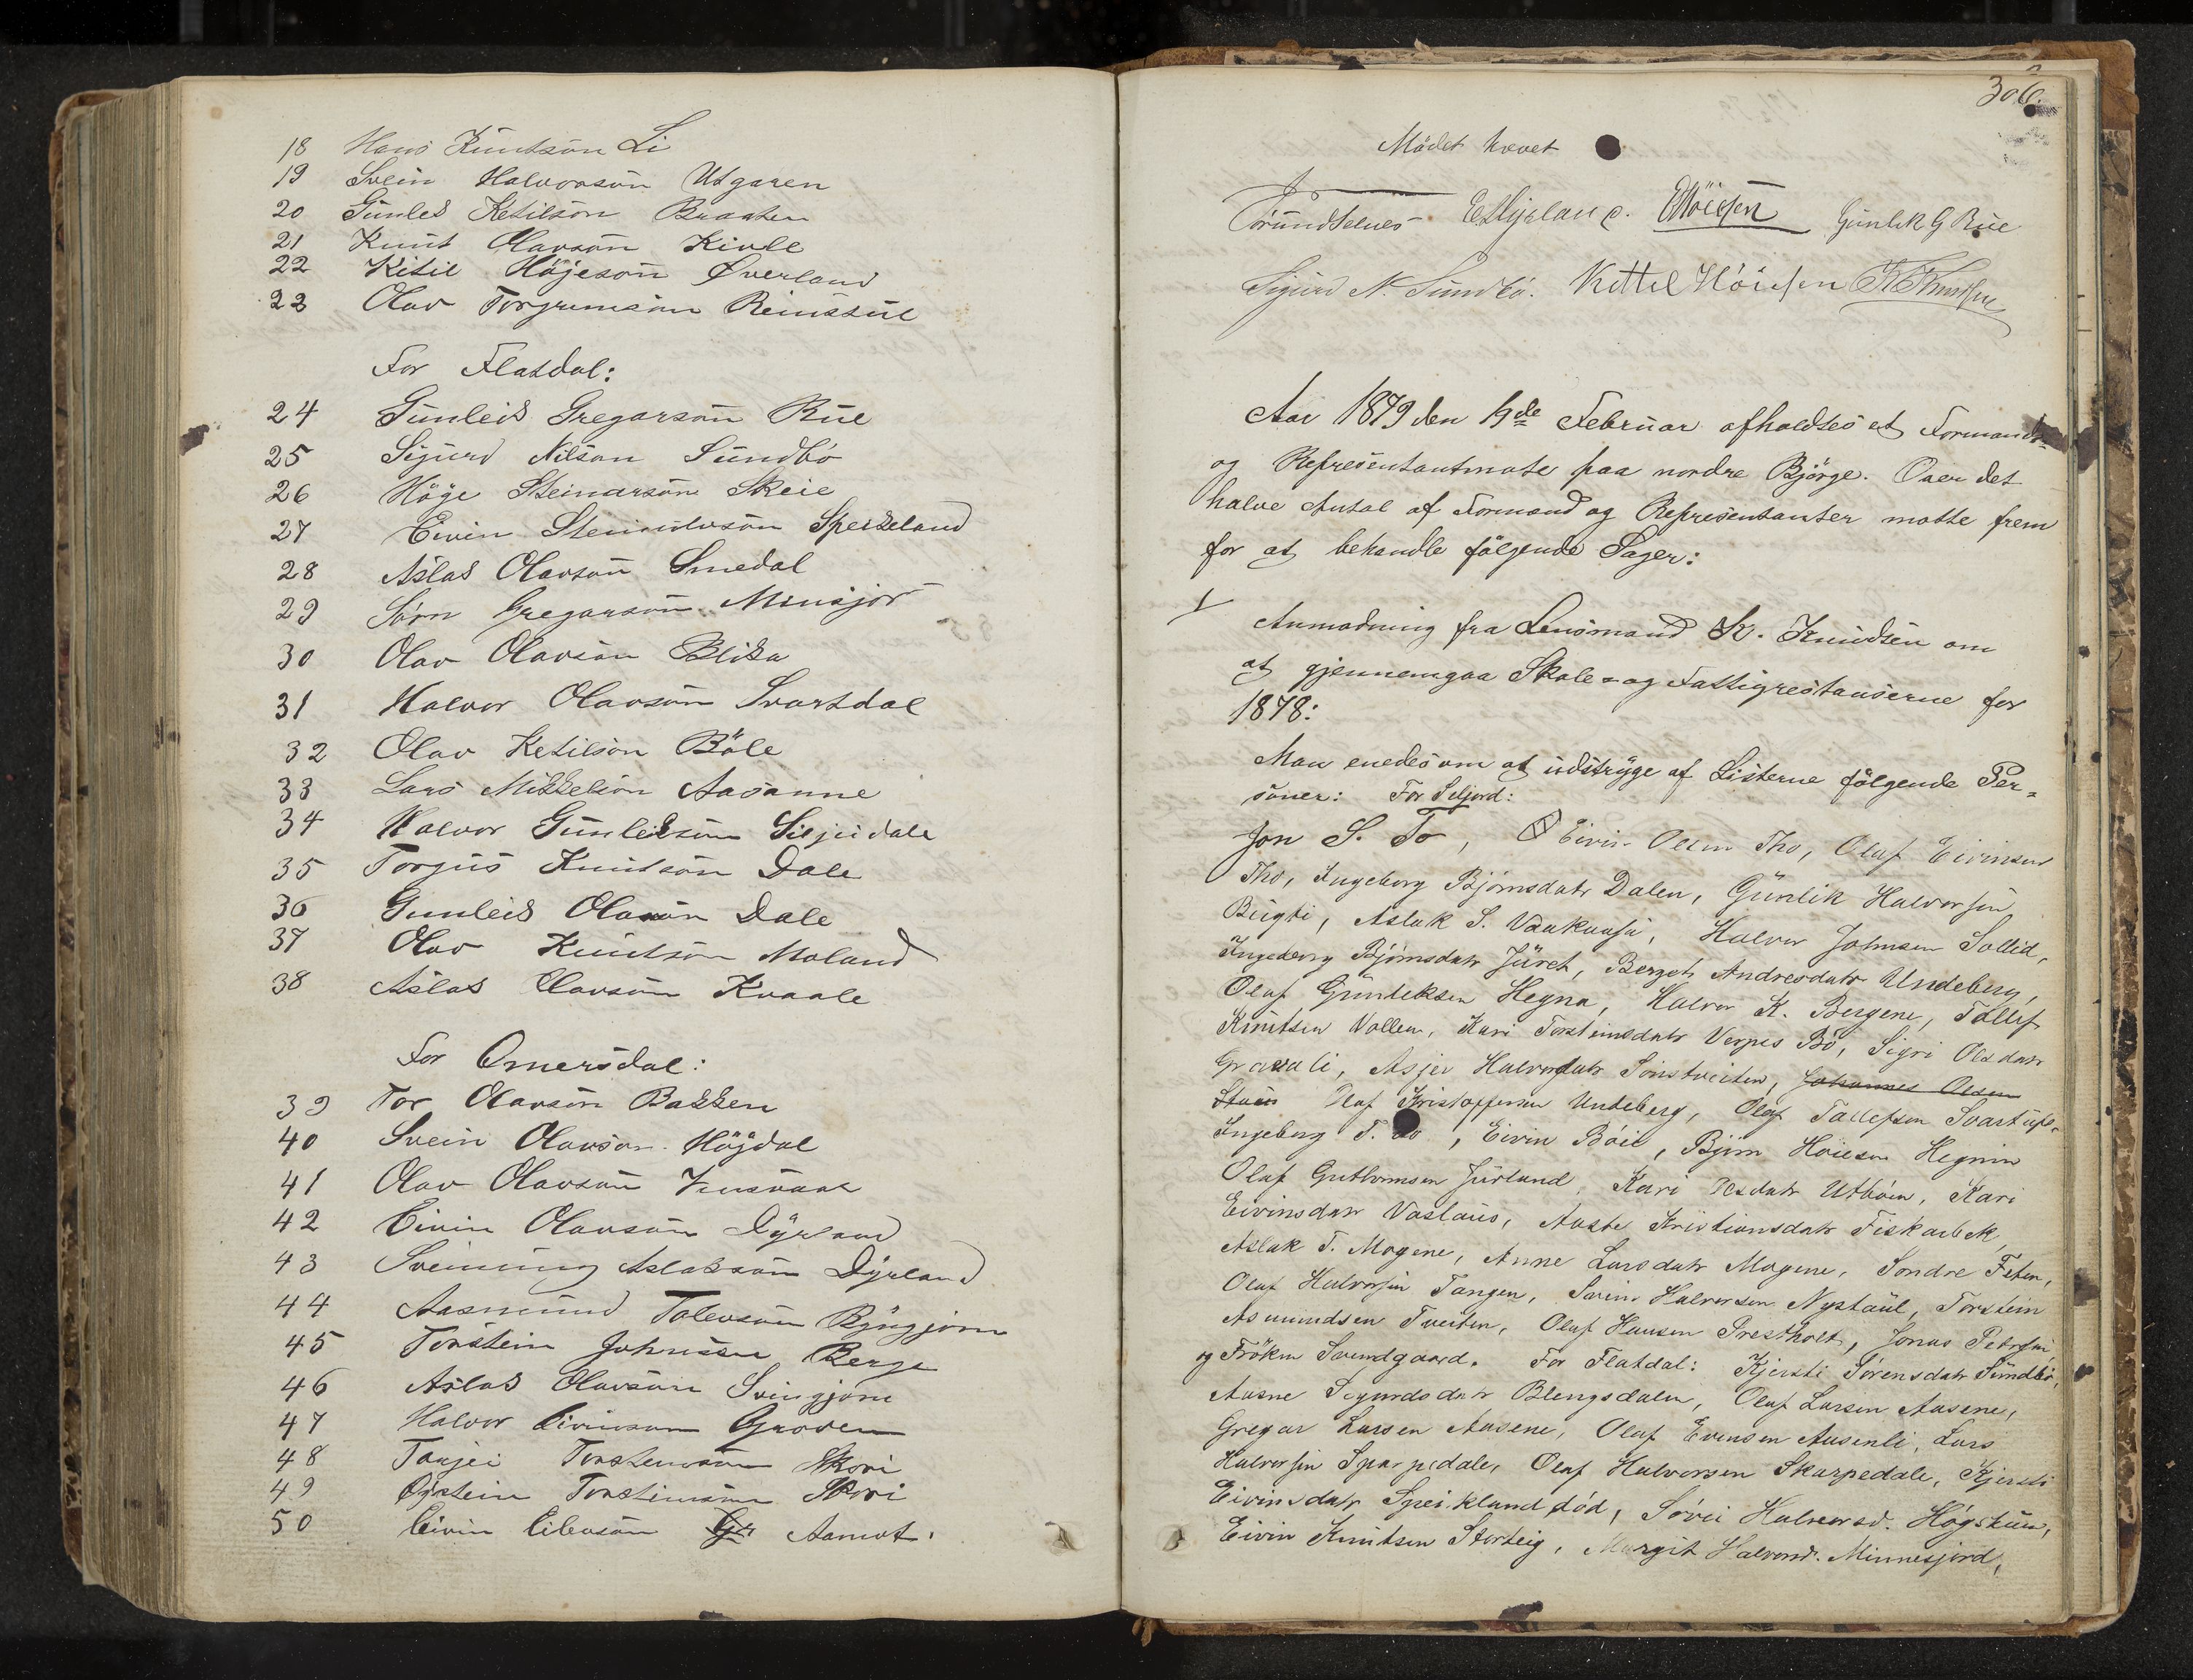 18 Hans Knutsön Li
19 Svein Halvorsön Utgaren
20 Gunleik Ketilsön Braaten
21 Knut Olavsön Kivle
22 Kitil Höjesön Øverland
23 Olav Torgrimsön Reinsstul
For Flatdal:
24 Gunleik Gregarsön Rue
25 Sigurd Nilsön Sundbö
26 Höge Steinarsön Skeie
27 Eivin Speikeland
28 Aslak Olavsön Smedal
29 Sörn Gregarsön Minsjor
30 Olav Olavsön Blika
31 Halvor Olavsön Svartdal
32 Olav Ketilsön Böle
33 Lars Mikkelsön Aasanne
34 Halvor Gunleiksön Siljeidale
35 Torjus Knutsön Dale
36 Gunleik Olavsön Dale
37 Olav Knutsön Moland
38 Aslak Olavsön Kvaale
For Omersdal:
39 Tor Olavsön Bakken
40 Svein Olavson Höjdal
41 Olav Olavsön
42 Eivin Olavsön Dÿrland
43 Sveinung Aslaksön Dÿrland
44 Aasmund Tolevsön
45 Torstein Johnssen Berge
46 Aslak Olavsön Svingjom
47 Halvor Eivinson Groven
48 Tarjei Torsteinsön Skori
49 Øystein Torsteinsön Skori
50 Eivin Eilevsön Aamot.
306.
Mödet hævet
Gunlek G Rue
Sigurd N. Sundbö. Kittel Höiesen K Knudsen
Aar 1879 den 19de Februar afholdtes et Formands-
og Repræsentantmöte paa nordre Björge. Over det
halve Antal af Formænd og Repræsentanter mötte frem
for at behandle fölgende Sager:
1/ Anmodning fra Lensmand K. Knudsen om
at gjennemgaa Skole- og Fattigrestanserne for
1878:
Man enedes om at udstryge af Listerne fölgende Per-
soner: For Seljord:
Jon S. To, Eivin Olsen Tho, Olaf Eivinsen
Tho, Ingeborg Björnsdatr Dalen, Günlik Halvorsen
Bugti, Aslak S. Halvor Johnsen Sollid,
Ingeborg Björnsdatr Juret, Bergit Andresdatr Undeberg,
Olaf Gunleksen Hegna, Halvor K. Bergene, Tollef
Knutsen Vollen, Kari Torsteinsdatr Verpes Bö, Sigri Olsdatr
Gravali, Asjer Halvorsdatr Sönstveiten, Johannes Olsen
Olaf Kristoffersen Undeberg, Olaf Tallefsen
Ingeborg T. , Eivin Böie, Björn Höiesen Hegnin
Olaf Guthormsen Jurland, Kari Olsdatr Utböen, Kari
Eivinsdatr Vaslaus, Aaste Kristiansdatr Fiskarbek,
Aslak T. Mogene, Anne Larsdatr Mogene, Sondre Feten,
Olaf Halvorsen Tangen, Svein Halvorsen Nystaul, Torstein
Asmundsen Tveiten, Olaf Hansen Prestholt, Jonas Petersen
og Fröken Svendgaard. For Flatdal: Kjersti Sörensdatr Sundbö,
Aasne Sigurdsdatr Blengsdalen, Olaf Larsen Aasene,
Gregar Larsen Aasene, Olaf Evensen Aasenli, Lars
Halvorsen Skarpedale, Olaf Halvorsen Skarpedale, Kjersti
Eivinsdatr Speikland död, Sövei Halvorsd. Högstun,
Eivin Knutsen Storteig, Margit Halvorsd. Minnesjord,